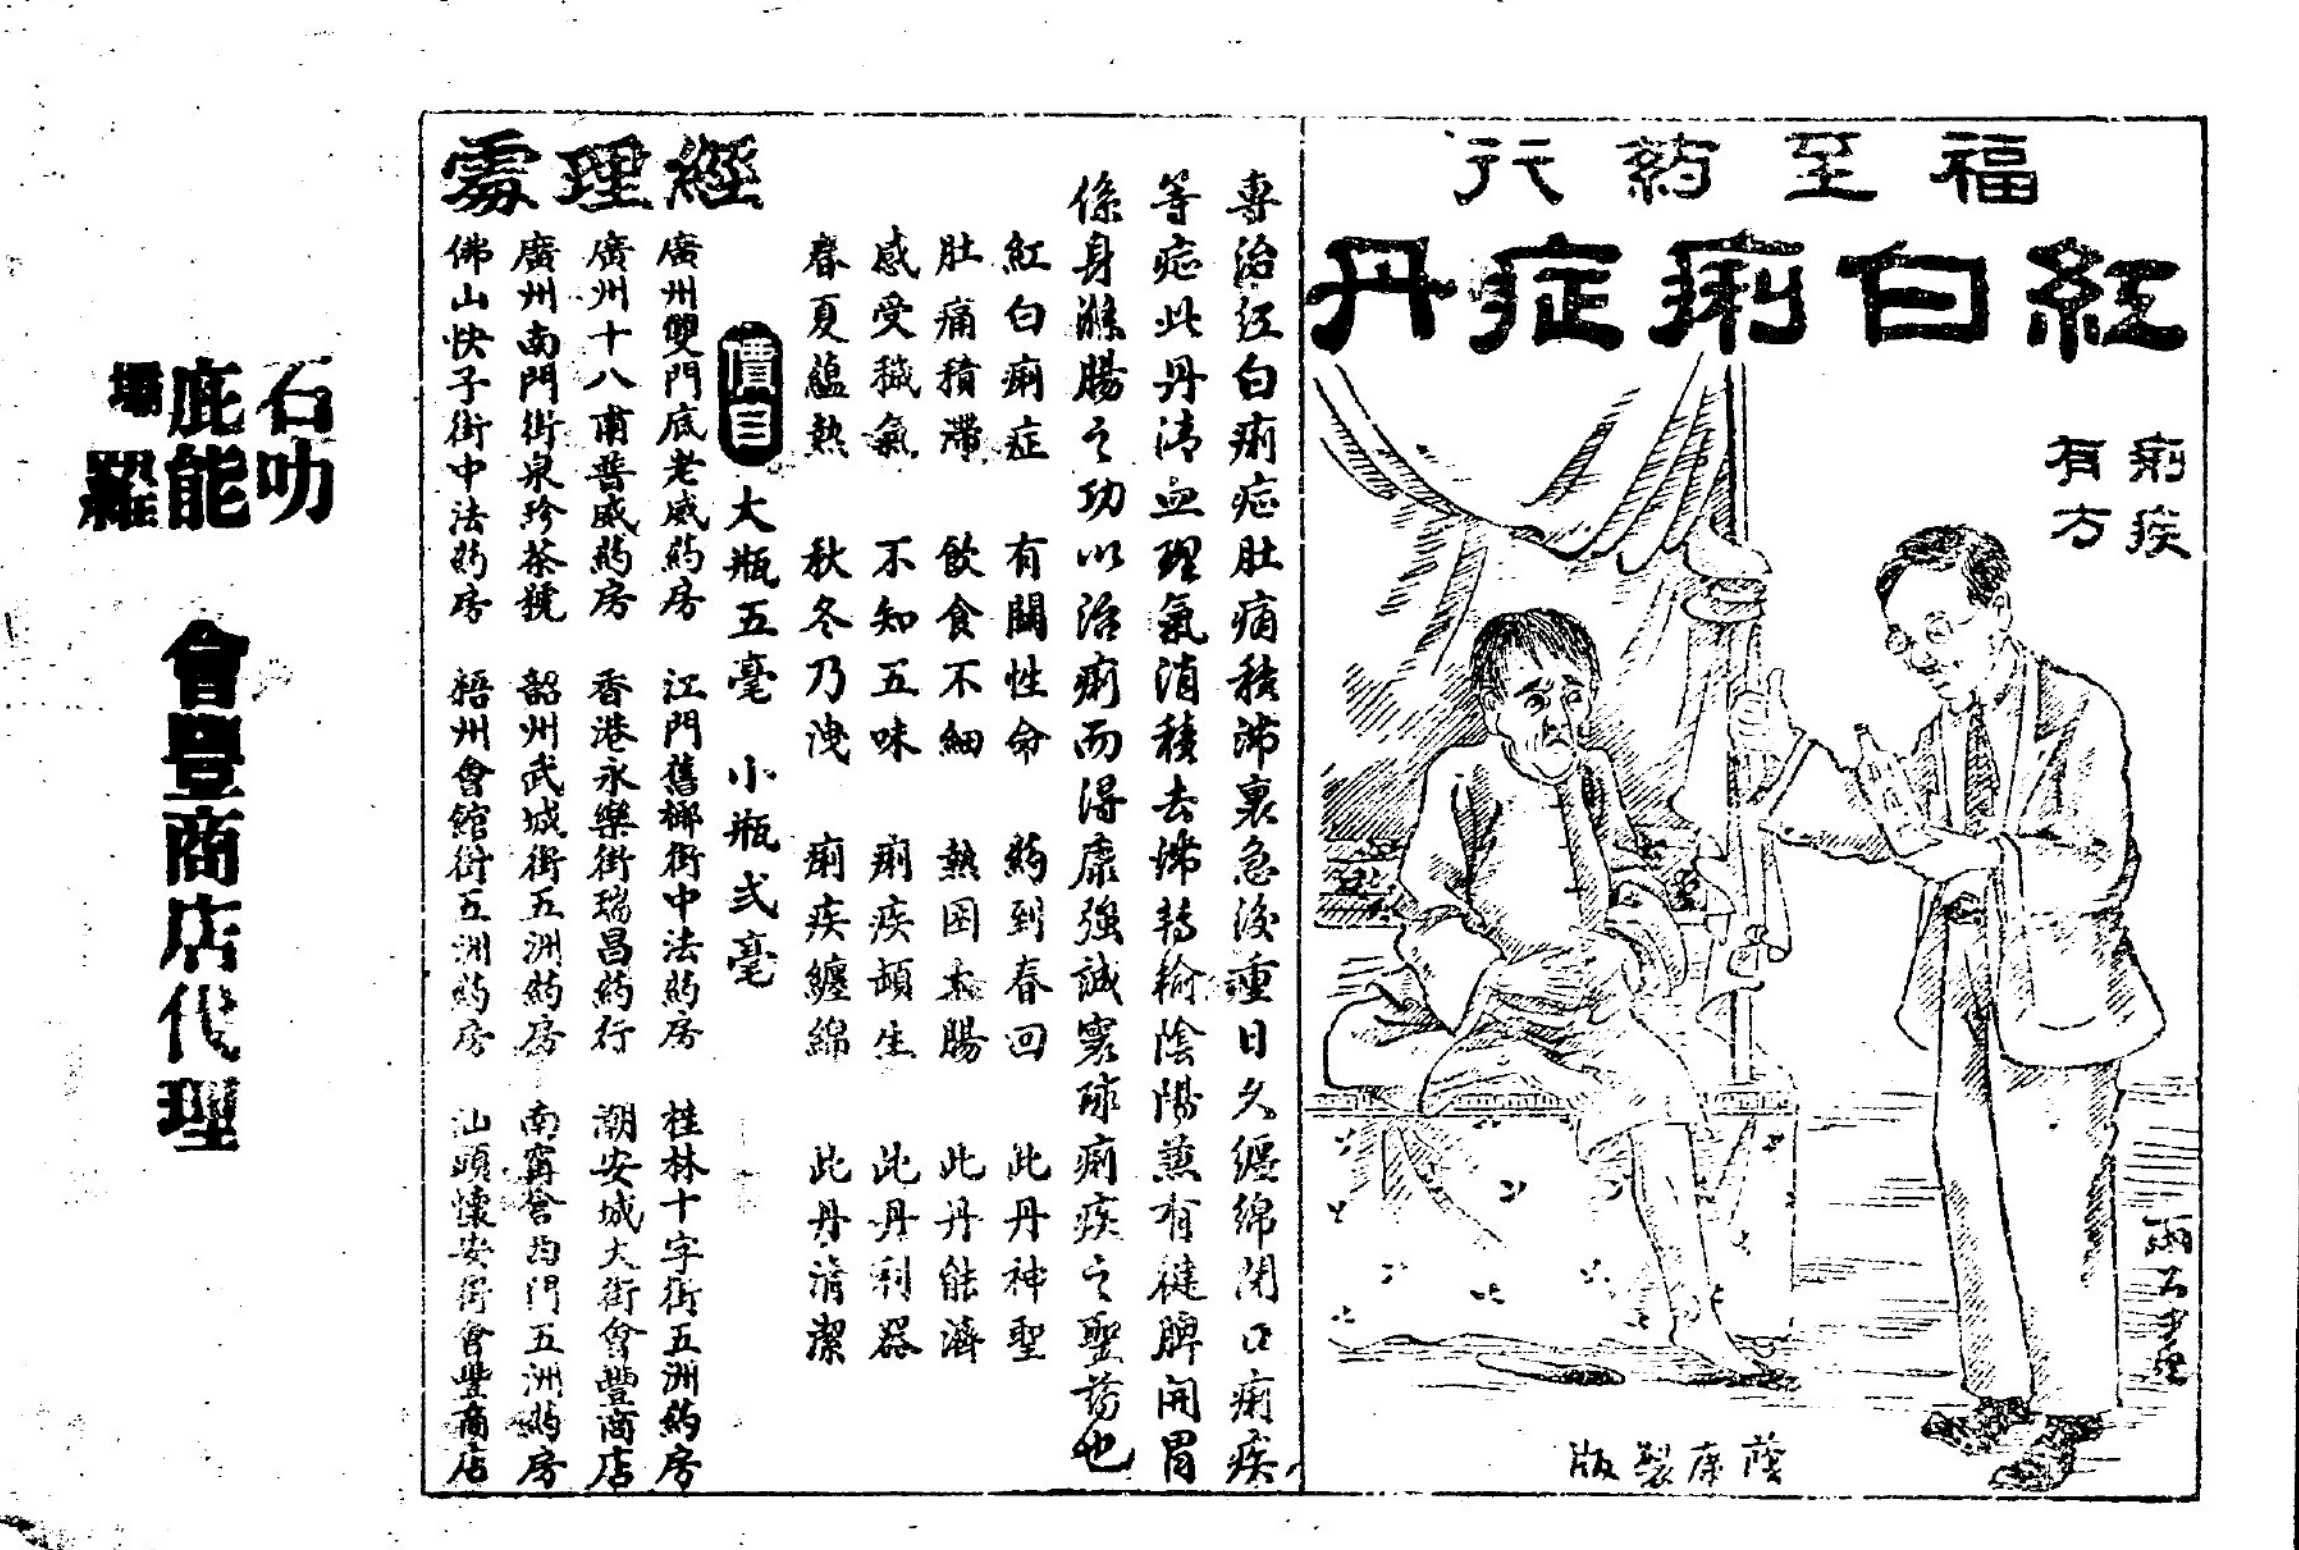 福至葯行
紅白痢症丹
痢疾
有方
蔭庥製版
專治红白痢症肚痛積滯裏急後重日久纏綿閉口痢疾
等症此丹清血理氣消積去滯轉輸陰陽兼有健脾開胃
係身滌腸之功以治痢而得康強誠寰球痢疾之聖葯也
紅白痢症 有關性命 葯到春回 此丹神聖
肚痛積滯 飲食不細 熱困大腸 此丹能濟
感受穢氣 不知五味 痢疾頓生 此丹利器
春夏蘊熱 秋冬乃洩 痢疾纏綿 此丹清潔
價目 大瓶五毫 小瓶弍毫
經理處
廣州雙門底老威葯房 江門舊榔街中法葯房 桂林十字街五洲葯房
廣州十八甫普威葯房 香港永樂街瑞昌葯行 潮安城大街會豐商店
廣州南門街泉珍茶號 韶州武城街五洲葯房 南寗倉門五洲葯房
佛山快子街中法葯房 梧州會館街五洲葯房 汕頭懷安街會豐商店
石叻
庇能
羅
會豐商店代理